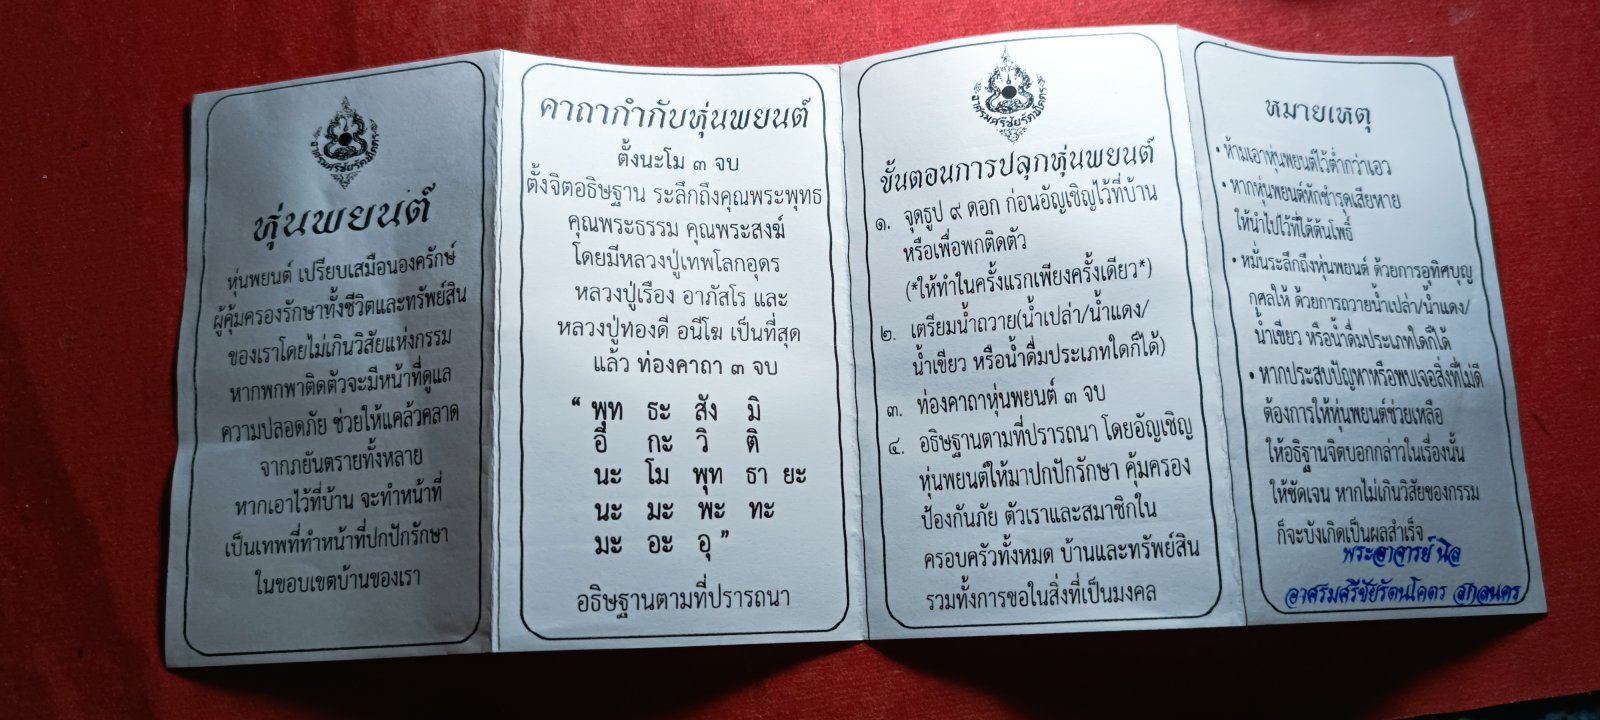 อาศรมศรีชัยรัตนโคตร
หุ่นพยนต์
หุ่นพยนต์ เปรียบเสมือนองครักษ์
ผู้คุ้มครองรักษาทั้งชีวิตและทรัพย์สิน
ของเราโดยไม่เกินวิสัยแห่งกรรม
หากพกพาติดตัวจะมีหน้าที่ดูแล
ความปลอดภัย ช่วยให้แคล้วคลาด
จากภยันตรายทั้งหลาย
หากเอาไว้ที่บ้าน จะทำหน้าที่
เป็นเทพที่ทำหน้าที่ปกปักรักษา
ในขอบเขตบ้านของเรา
คาถากำกับหุ่นพยนต์
ตั้งนะโม ๓ จบ
ตั้งจิตอธิษฐาน ระลึกถึงคุณพระพุทธ
คุณพระธรรม คุณพระสงฆ์
โดยมีหลวงปู่เทพโลกอุดร
หลวงปู่เรือง อาภัสโร และ
หลวงปู่ทองดี อนีโฆ เป็นที่สุด
แล้ว ท่องคาถา ๓ จบ
“ พุท ธะ สัง มิ
อิ กะ วิ ติ
นะ โม พุท ธา ยะ
นะ มะ พะ ทะ
มะ อะ อุ ”
อธิษฐานตามที่ปรารถนา
อาศรมศรีชัยรัตนโคตร
ขั้นตอนการปลุกหุ่นพยนต์
๑. จุดธูป ๙ ดอก ก่อนอัญเชิญไว้ที่บ้าน
หรือเพื่อพกติดตัว
(*ให้ทำในครั้งแรกเพียงครั้งเดียว*)
๒. เตรียมน้ำถวาย(น้ำเปล่า/น้ำแดง/
น้ำเขียว หรือน้ำดื่มประเภทใดก็ได้)
๓. ท่องคาถาหุ่นพยนต์ ๓ จบ
๔. อธิษฐานตามที่ปรารถนา โดยอัญเชิญ
หุ่นพยนต์ให้มาปกปักรักษา คุ้มครอง
ป้องกันภัย ตัวเราและสมาชิกใน
ครอบครัวทั้งหมด บ้านและทรัพย์สิน
รวมทั้งการขอในสิ่งที่เป็นมงคล
หมายเหตุ
• ห้ามเอาหุ่นพยนต์ไว้ต่ำกว่าเอว
• หากหุ่นพยนต์หักชำรุดเสียหาย
ให้นำไปไว้ที่ใต้ต้นโพธิ์
• หมั่นระลึกถึงหุ่นพยนต์ ด้วยการอุทิศบุญ
กุศลให้ ด้วยการถวายน้ำเปล่า/น้ำแดง/
น้ำเขียว หรือน้ำดื่มประเภทใดก็ได้
• หากประสบปัญหาหรือพบเจอสิ่งที่ไม่ดี
ต้องการให้หุ่นพยนต์ช่วยเหลือ
ให้อธิฐานจิตบอกกล่าวในเรื่องนั้น
ให้ชัดเจน หากไม่เกินวิสัยของกรรม
ก็จะบังเกิดเป็นผลสำเร็จ
พระอาจารย์ นิล
อาศรมศรีชัยรัตนโคตร สกลนคร